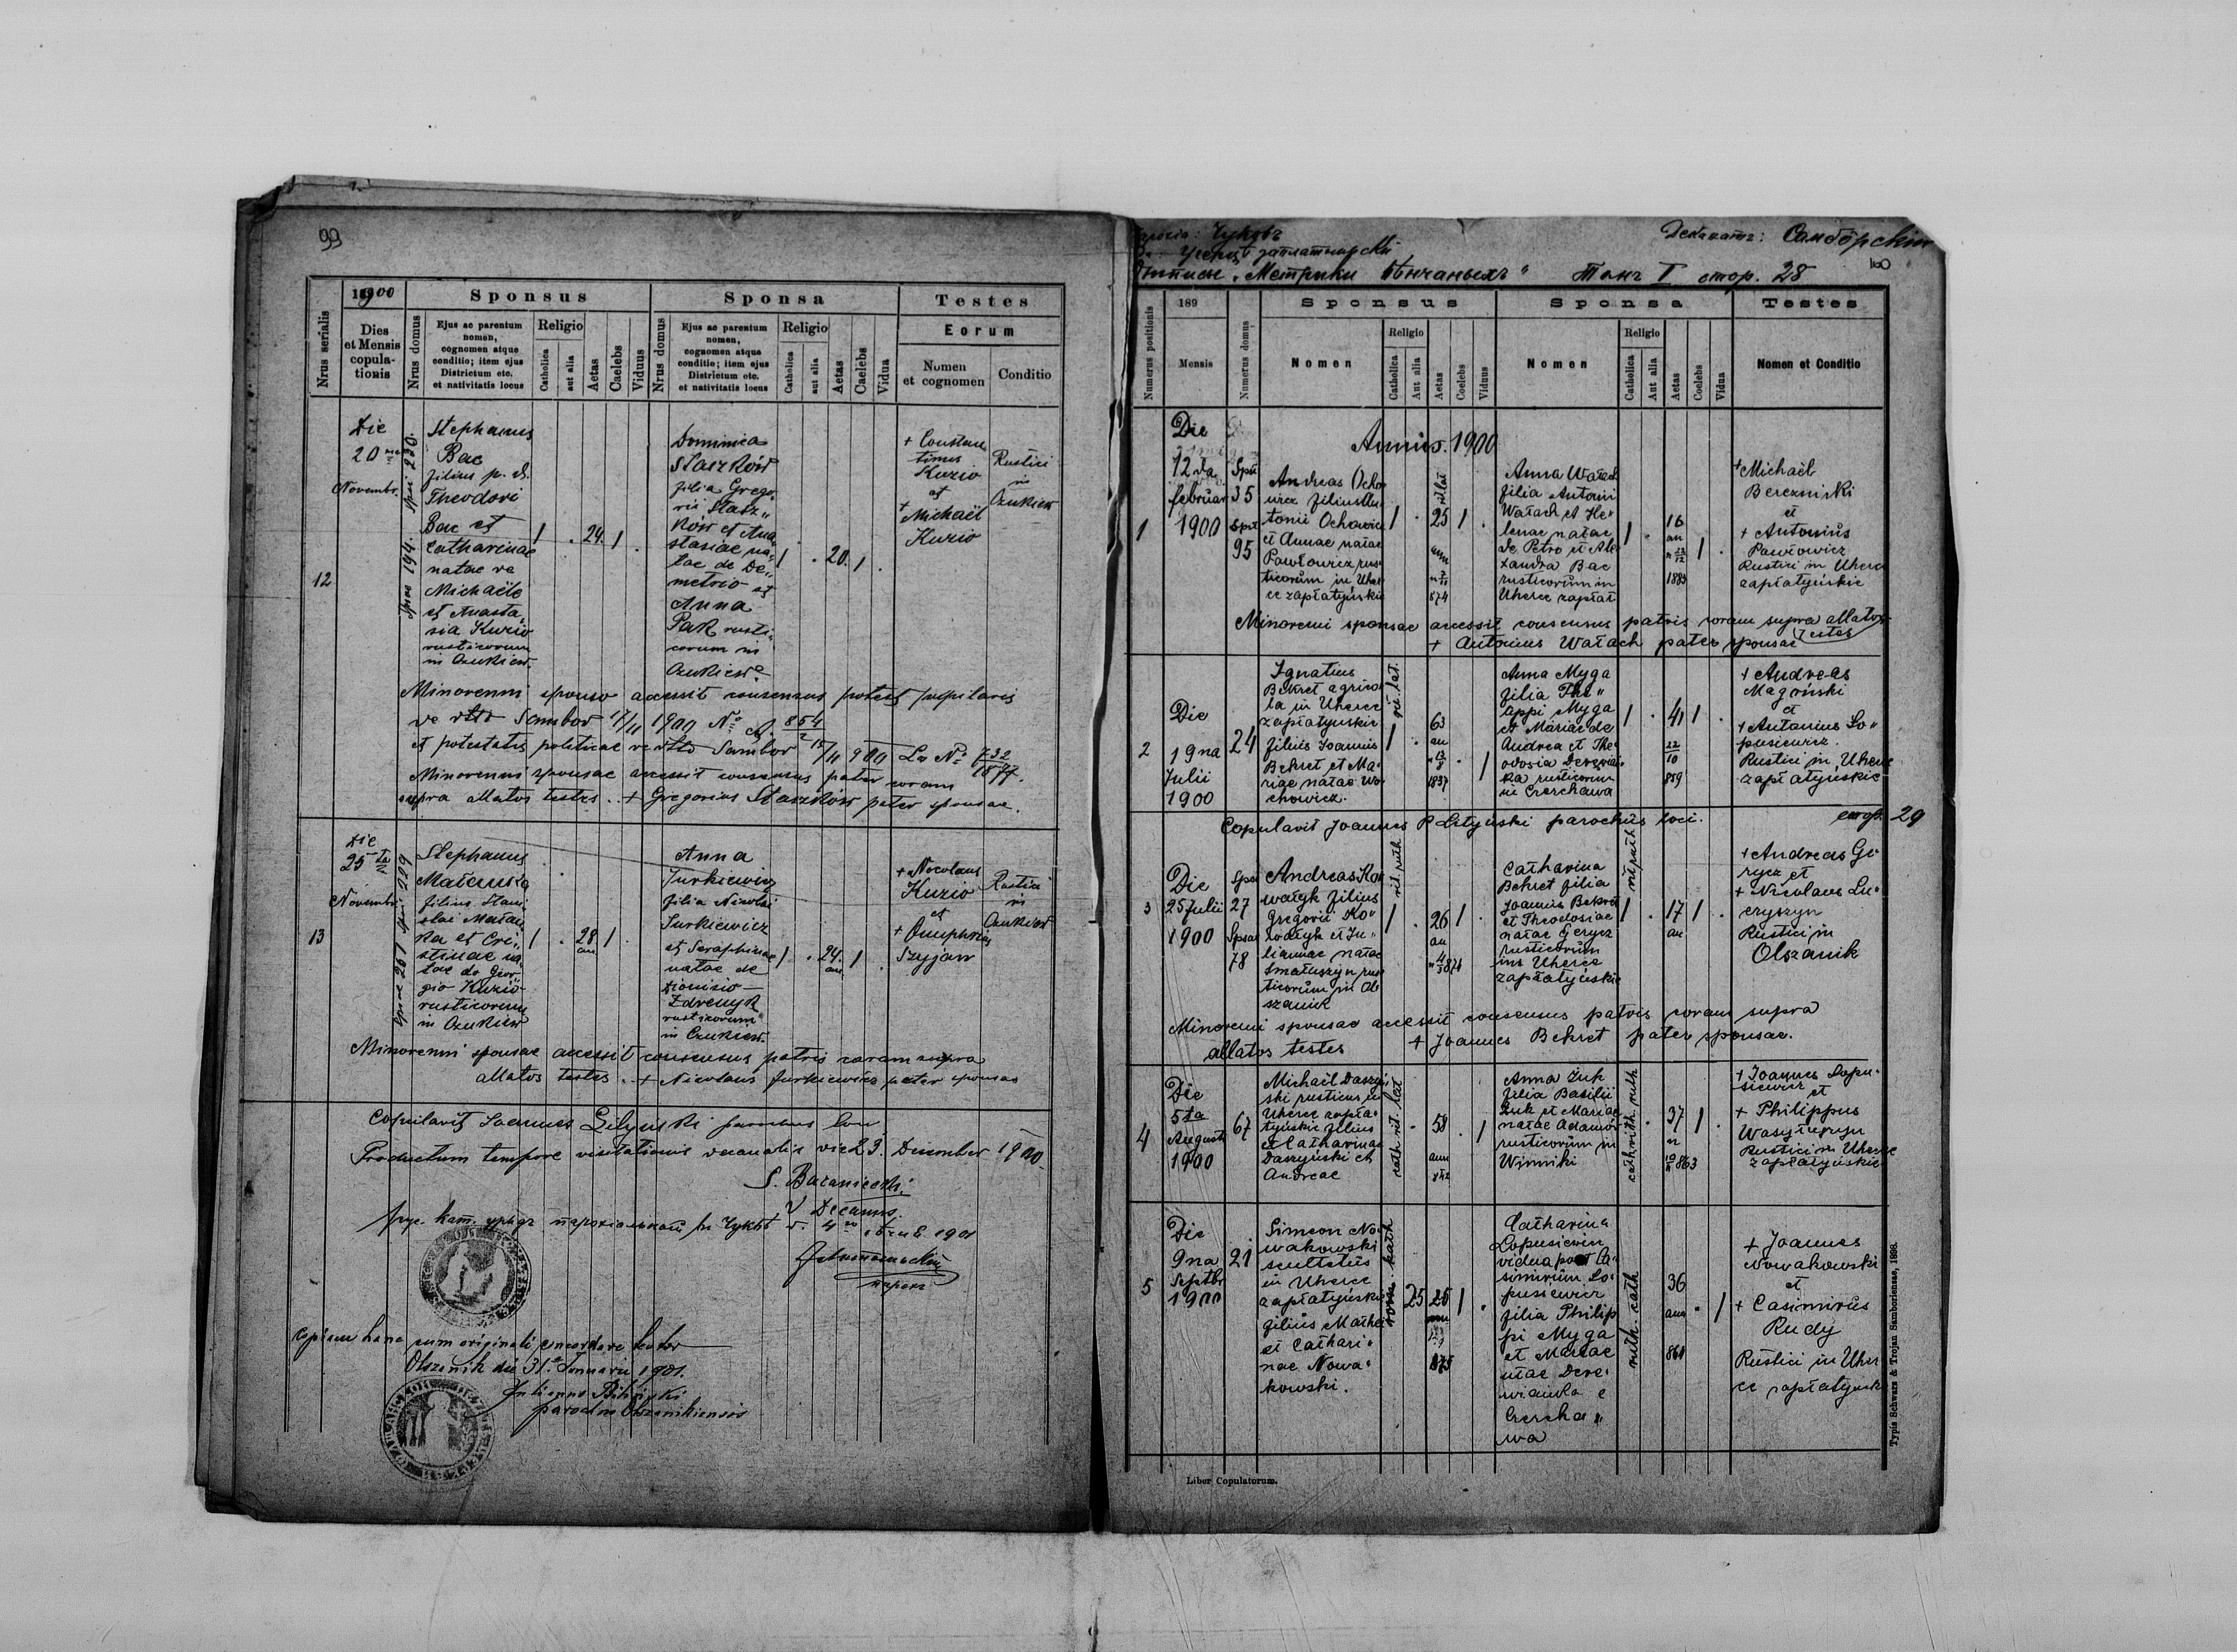 99
1900
Sponsus
Sponsa
Testes
Nrus serialis
Dies
et Mensis
copula-
tionis
Nrus domus
Ejus ac parentum
nomen,
cognomen atque
conditio; item ejus
Districtum etc.
et nativitatis locus
Religio
Catholica
aut alia
Aetas
Caelebs
Viduus
Nrus domus
Ejus ac parentum
nomen,
cognomen atque
conditio; item ejus
Districtum etc.
et nativitatis locus
Religio
Catholica
aut alia
Aetas
Caelebs
Vidua
Eorum
Nomen
et cognomen
Conditio
12
Die
20
Novembr.
Stephanus
Bac
filius p. d.
Theodori
Bac et
Catharinae
natae de
Michaële
et Anasta
sia Kuzio
rusticorum
in Czukiew
1 . 24. 1 .
Dominica
Staszków
filia Grego
rii Stasz„
ków et Ana
stasiae na
tae de De„
metrio et
Anna
Pak rusti
corum in
Czukiew
1 . 20. 1 .
+ Constan
tinus
Kuzio
et
+
Michaël
Kuzio
Rustici
in
Czukiew
Minorenni sponso accessit consensus potest pupilaris
de dtto Sambor 17/11 1900 No 854
et potestatis politicae de dtto Sambor
Minorenni sponsae accessit consensus patris coram
supra allatos testes . + Gregorius Staszków pater sponsae.
13
Die
25 ta
Novembr
Stephanus
filius Stani
slai
ka et Cri„
stinae na
tae de Geor
gio Kuzio
rusticorum
in Czukiew
1 . 28. 1 .
an.
Anna
Turkiewicz
filia Nicolai
Turkiewicz
et Seraphinae
natae de
Dionisio
rusticorum
in Czukiew.
1 . 24. 1 .
an.
+ Nicolaus
Kuzio
et
+ Onuphrius
Szyjan
Rustici
in
Czukiew
Minorenni sponsae accessit consensus patris coram supra
allatos testes . + Nicolaus Turkiewicz pater sponsae
Copulavit Joannes Lityński parochus loci
Productum tempore visitationis decanalis die 23. Decembr 1900
V Decanus.
Copiam hanc cum originali concordare testor
Olszanik die 31. Januarii 1901.
Julianus
parochus Olszanikiensis
Чуковъ
Деканатъ: Самбôрскій
100
Выписы „Метрики Вѣнчаныхъ" Томъ I стор. 28
Numerus positionis
189
Mensis
Numerus domus
Sponsus
Nomen
Religio
Catholica
Aut alia
Aetas
Coelebs
Viduus
Sponsa
Nomen
Religio
Catholica
Aut alia
Aetas
Coelebs
Vidua
Testes
Nomen et Conditio
Annus. 1900
1
Die
12 da
februar
1900
Spsi
35
Spsae
95
Andreas Ocho
wicz filius An
tonii Ochowicz
et Annae natae
Pawłowicz rus
ticorum in Uher
ce zapłatyńskie
1 . 25 1 .
874
Anna Wałach
filia Antoni
Wałach et He„
lenae natae
de Petro et Ale
xandra Bac
rusticorum in
Uherce zapłat
1 . 16 1 .
an
1883
+ Michaël
Bereznicki
et
+ Antonius
Pawłowicz
Rustici in Uherce
zapłatyńskie
Minorenni sponsae accessit consensus patris coram supra allatos
testes
+ Antonius Wałach pater sponsae
2
Die
19 na
Julii
1900
24
Ignatius
Bekret agrico
la in Uherce
zapłatyńskie
filius Joannis
Bekret et Ma„
riae natae Wo„
chowicz.
1 . 63 . 1
an
1837
Anna Myga
filia Phi„
lippi Myga
et Mariae de
Andrea et The„
odosia Derewian
ka rusticorum
in Czerchawa
1 . 41 1 .
22/10
859
+ Andreas
Magoński
et
+ Antonius Ło„
pusiewicz.
Rustici in Uherce
zapłatyńskie
Copulavit Joannes Lityński parochus loci.
стор. 29
3
Die
25 Julii
1900
Spsi
27
Spsae
78
Andreas Ko
wałyk filius
Gregorii Ko„
wałyk et Ju„
liannae natae
Smałuszyn rus
ticorum in Ol
szanik
rit. ruth.
1 . 26 1 .
an
Catharina
Bekret filia
Joannis Bekret
et Theodosiae
natae Gerycz
rusticorum
in Uherce
zapłatyńskie
rit. ruth
1 . 17 1 .
an
+ Andreas Ge„
rycz et
+ Nicolaus Lu„
cyszyn
Rustici in
Olszanik
Minorenni sponsae accessit consensus patris coram supra
allatos testes + Joannes Bekret pater sponsae.
4
Die
5 ta
Augusti
1900
67
Michaël Daszyń
ski rusticus in
Uherce zapła„
tyńskie filius
et Catharinae
Daszyński et
Andreae
cath rit. lat
. 58 . 1
ann
842
Anna Żuk
filia Basilii
Żuk et Mariae
natae Adamów
rusticorum in
Winniki
cath rith. ruth
. 37 1 .
863
+ Joannes Łopu„
siewicz et
+ Philippus
Rustici in Uherce
zapłatyńskie
5
Die
9 na
Septbr
1900
21
Simeon No„
wakowski
scultetus
in Uherce
zapłatyńskie
filius Mathei
et Cathari„
nae Nowa„
kowski.
rom. kath
25 25 1 .
ann
875
Catharina
Łopusiewicz
vidua post Ca„
simirum Ło„
pusiewicz
filia Philip
pi Myga
et Mariae
natae Dere„
wianka e
Czercha„
wa
ruth. cath
36 . 1
ann
864
+ Joannes
Nowakowski
et
+ Casimirus
Rudy
Rustici in Uher
ce zapłatyńsk
Liber Copulatorum.
Typis Schwarz & Trojan Samboriensae, 1898.